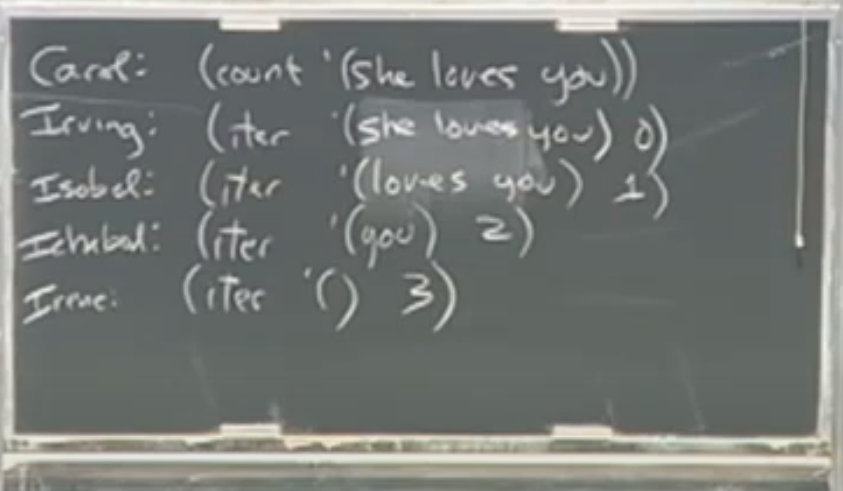 Carol: (count '(she loves you))
Irving: (iter '(she loves you) 0)
Isobel: (iter '(loves you) 1)
Ichabod: (iter '(you) 2)
Irene: (iter '() 3)